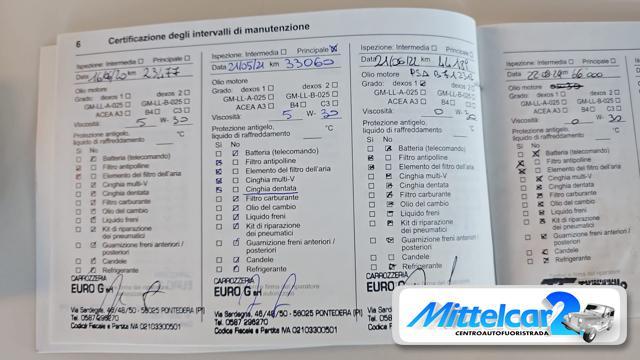 6 Certificazione degli intervalli di manutenzione
Ispezione: Intermedia Principale
Data km 23.477
Olio motore
Grado: dexos 1 dexos 2
GM-LL-A-025 GM-LL-B-025
ACEA A3 B4 C3
Viscosità: 5 W- 30
Protezione antigelo, °C
liquido di raffreddamento:
Sì No
Batteria (telecomando)
Filtro antipolline
Elemento del filtro dell'aria
Cinghia multi-V
Cinghia dentata
Filtro carburante
Olio del cambio
Liquido freni
Kit di riparazione
dei pneumatici
Guarnizione freni anteriori /
posteriori
Candele
Refrigerante
CARROZZERIA
EURO G srl
Via Sardegna, 46/48/50 - 56025 PONTEDERA (PI)
Tel. 0587 296270
Codice Fiscale e Partita IVA 02103300501
Ispezione: Intermedia Principale
Data 21/05/21 km 33060
Olio motore
Grado: dexos 1 dexos 2
GM-LL-A-025 GM-LL-B-025
ACEA A3 B4 C3
Viscosità: 5 W- 30
Protezione antigelo, °C
liquido di raffreddamento:
Sì No
Batteria (telecomando)
Filtro antipolline
Elemento del filtro dell'aria
Cinghia multi-V
Cinghia dentata
Filtro carburante
Olio del cambio
Liquido freni
Kit di riparazione
dei pneumatici
Guarnizione freni anteriori /
posteriori
Candele
Refrigerante
CARROZZERIA
EURO G srl
Via Sardegna, 46/48/50 - 56025 PONTEDERA (PI)
Tel. 0587 296270
Codice Fiscale e Partita IVA 02103300501
Ispezione: Intermedia Principale
Data 21/06/22 km
Olio motore PSA
Grado: dexos 1 dexos 2
GM-LL-A-025 GM-LL-B-025
ACEA A3 B4 C3
Viscosità: 0 W- 30
Protezione antigelo, °C
liquido di raffreddamento:
Sì No
Batteria (telecomando)
Filtro antipolline
Elemento del filtro dell'aria
Cinghia multi-V
Cinghia dentata
Filtro carburante
Olio del cambio
Liquido freni
Kit di riparazione
dei pneumatici
Guarnizione freni anteriori /
posteriori
Candele
Refrigerante
CARROZZERIA
EURO G srl
Via Sardegna, 46/48/50 - 56025 PONTEDERA (PI)
Tel. 0587 296270
Codice Fiscale e Partita IVA 02103300501
Ispezione: Intermedia Principale
Data km 66.000
Olio motore
Grado: dexos 1 dexos 2
GM-LL-A-025 GM-LL-B-025
ACEA A3 B4 C3
Viscosità: 0 W- 30
Protezione antigelo, °C
liquido di raffreddamento:
Sì No
Batteria (telecomando)
Filtro antipolline
Elemento del filtro dell'aria
Cinghia multi-V
Cinghia dentata
Filtro carburante
Olio del cambio
Liquido freni
Kit di riparazione
dei pneumatici
Guarnizione freni anteriori /
posteriori
Candele
Refrigerante
Mittelcar 2
CENTROAUTOFUORISTRADA